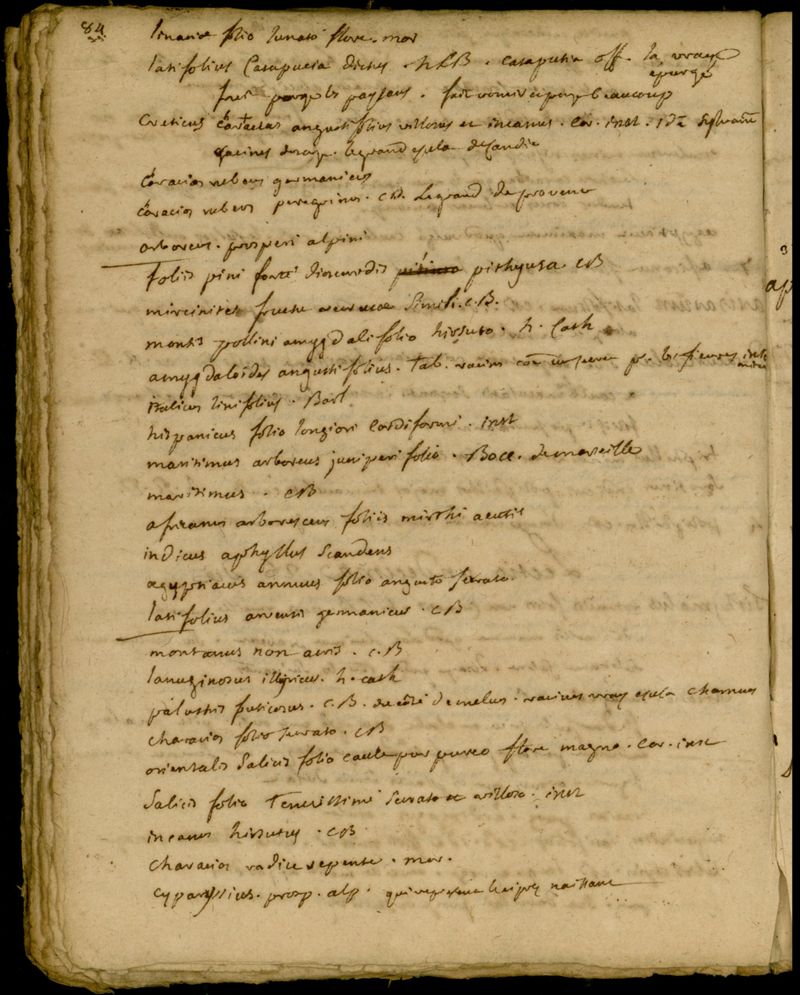 84
linariæ folio lunato flore. mor
latifolius Catapucia dictus. HLB. catapucia off. la vraye epurge
fait vomir et purge beaucoup
Creticus characias angustifolius villosus et incanus. Cor. inst.
racines legrand esula de Candie
characias rubens germanicus
characias rubens peregrinus. CB. Legrand de provence
arboreus. prosperi alpini
foliis pini forte dioscoridis pithyusa CB
mircinites fructu verrucæ simili. C.B.
montis pollini amygdali folio hirsuto. h. Cath
amygdaloides angustifolius. Tab. racine
italicus linifolius. Barl
hispanicus folio longiori Cordiformi. inst
maritimus arboreus juniperi folio. Bocc. de marseille
maritimus. CB
africanus arborescens foliis mirthi acutis
indicus aphyllus scandens
ægyptiacus annuus folio angusto serrato.
latifolius arvensis germanicus. CB
montanus non acris. C.B
lanuginosus illyricus. h. cath
palustris fruticosus. C.B. du côté de melus. racines vray esula
characias folio serrato. CB
orientalis Salicis folio caule purpureo flore magno. Cor. inst
Salicis folio Tenuissime serrato et villoso. inst
incanus hirsutus. CB
characias radice repente. mor.
cyparissius. prosp. alp. naissant